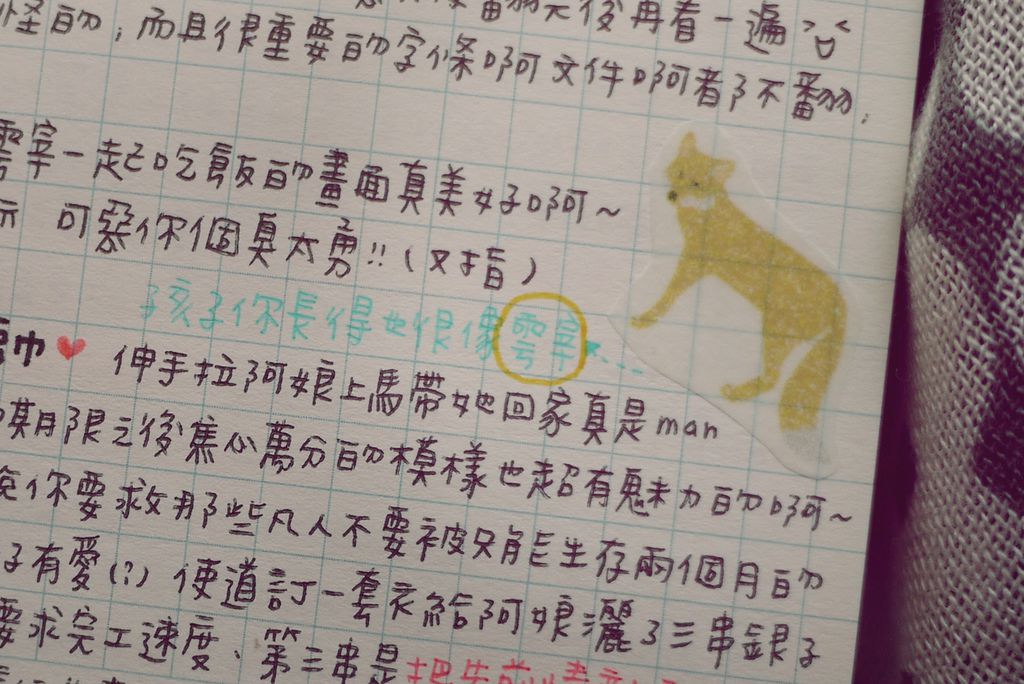 翻完後再看一遍
怪的；而且很重要的字條啊文件啊都不翻；
雲宰一起吃飯的畫面真美好啊～
可惡你個臭太君!!（又指）
孩子你長得也很像雲宰...
巾♥ 伸手拉阿娘上馬帶她回家真是man
期限之後焦心萬分的模樣也超有魅力的啊～
你要求那些凡人不要被只能生存兩個月的
子有愛(?) 使道訂一套衣給阿娘灑了三串銀子
要求完工速度、第三串是把